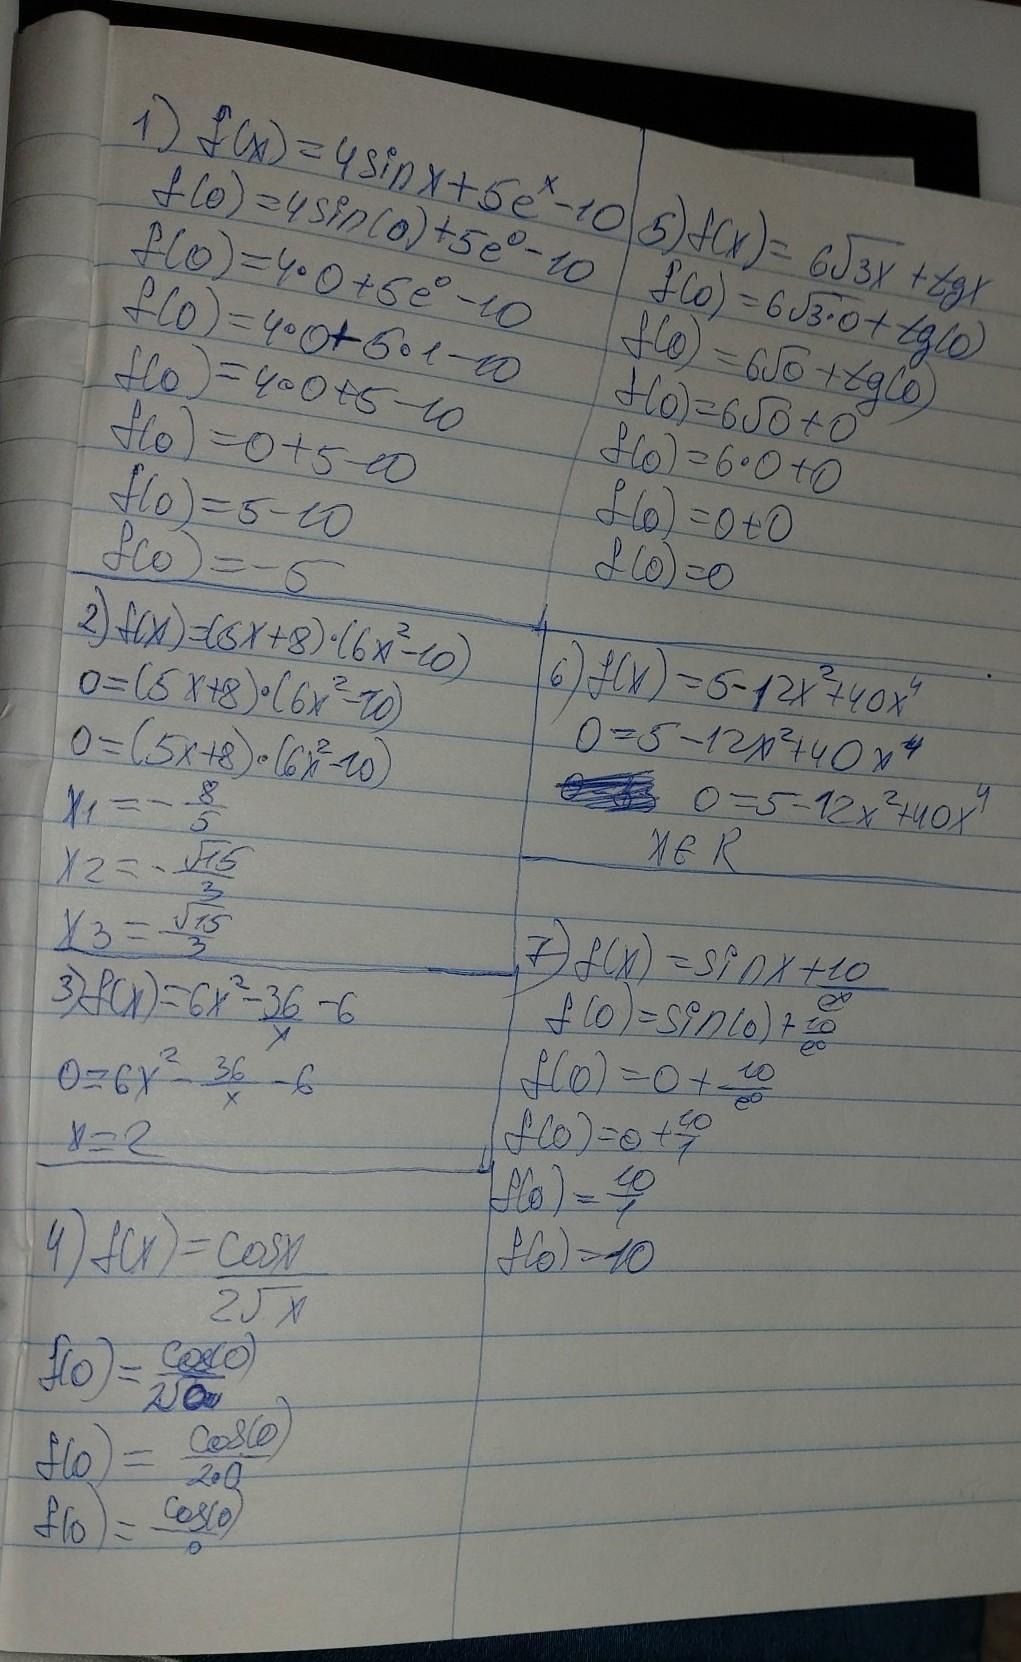 1) f(x)=4sinx+5e^x-10
f(0)=4sin(0)+5e^0-10
f(0)=4•0+5e^0-10
f(0)=4•0+5•1-10
f(0)=4•0+5-10
f(0)=0+5-10
f(0)=5-10
f(0)=-5
2) f(x)=(5x+8)•(6x²-10)
0=(5x+8)•(6x²-10)
0=(5x+8)•(6x²-10)
x1=-8/5
x2=-√15/3
x3=√15/3
3) f(x)=6x²-36/x-6
0=6x²-36/x-6
x=2
4) f(x)=cosx/2√x
f(0)=cos(0)/2√0
f(0)=cos(0)/2•0
f(0)=cos(0)/0
5) f(x)=6√3x+tgx
f(0)=6√3•0+tg(0)
f(0)=6√0+tg(0)
f(0)=6√0+0
f(0)=6•0+0
f(0)=0+0
f(0)=0
6) f(x)=5-12x²+40x⁴
0=5-12x²+40x⁴
0=5-12x²+40x⁴
x∈R
7) f(x)=sinx+10/e^x
f(0)=sin(0)+10/e^0
f(0)=0+10/e^0
f(0)=0+10/1
f(0)=10/1
f(0)=10